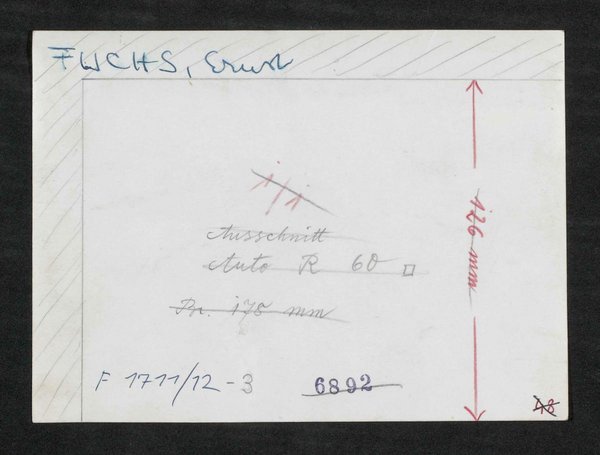 FUCHS, Ernst
1/1
126 mm
Ausschnitt
Auto R 60 □
Br. 178 mm
F 1711/12 - 3
6892
48